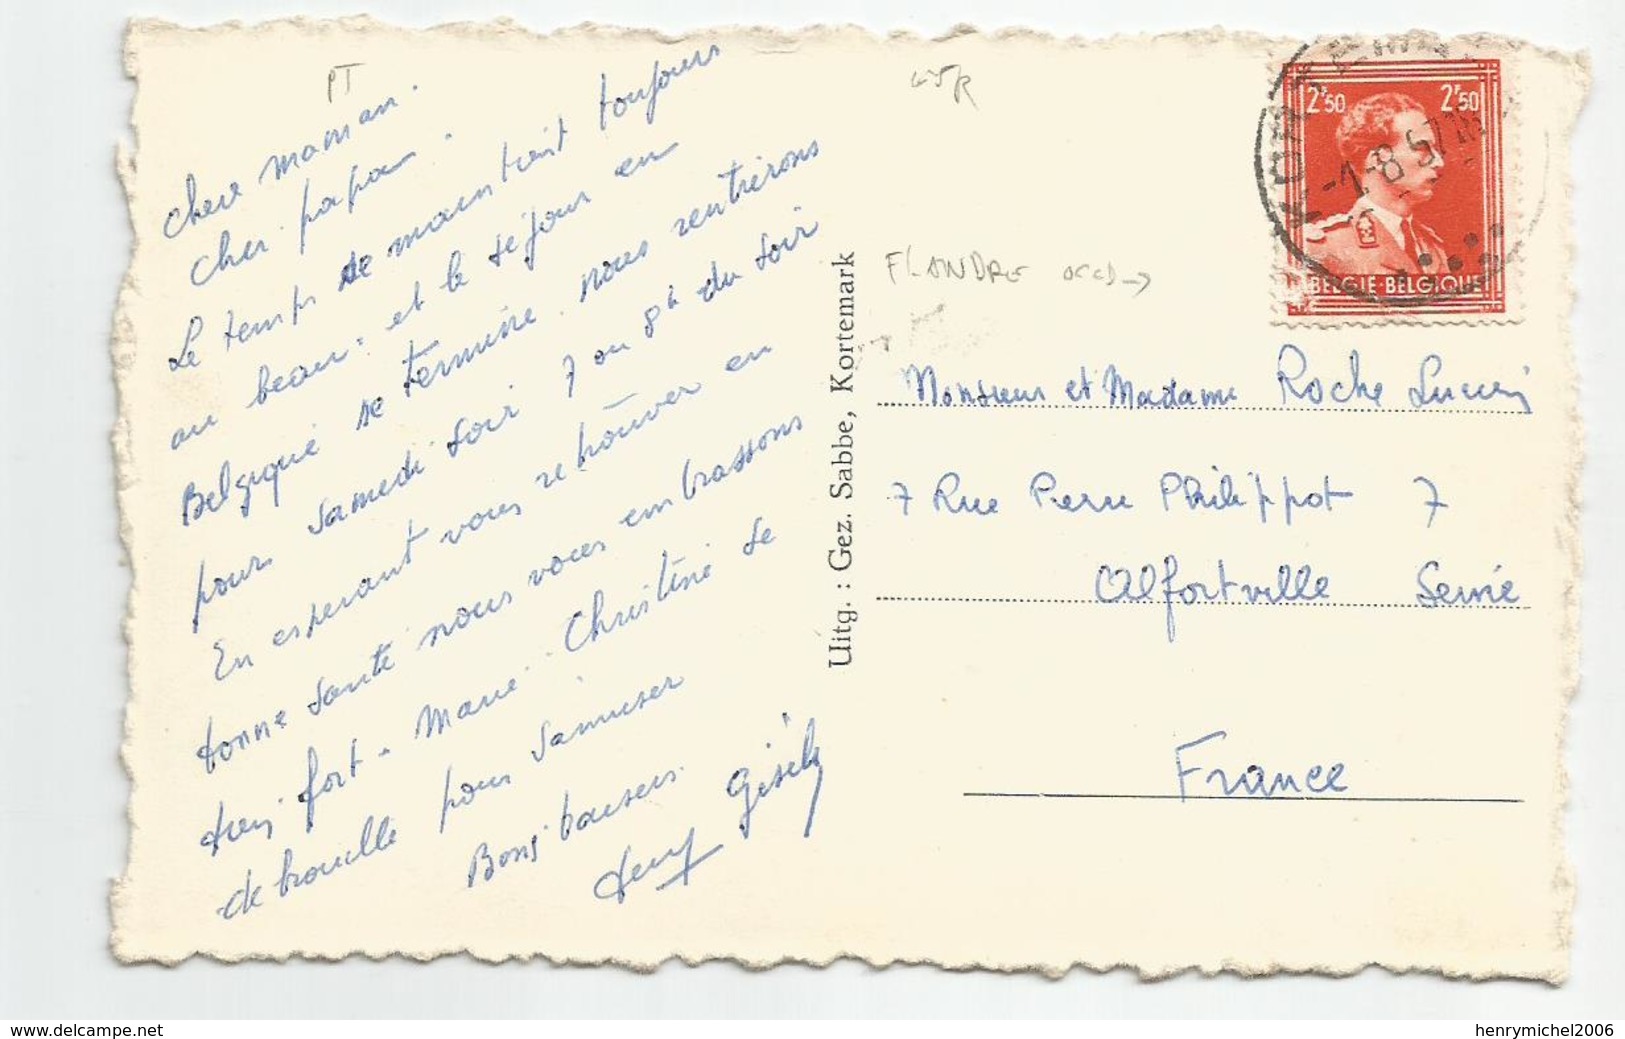 PT
Chere maman.
Cher papa.
Le temps se maintient toujours
au beau. et le séjour en
Belgique se termine. nous rentrerons
pour samedi soir 7 ou 8h du soir
En esperant vous retrouver en
bonne santé nous vous embrassons
bien fort - Marie. Christine se
debrouille pour s'amuser
Bons baisers.
Gisèle
Uitg. : Gez. Sabbe, Kortemark
FLANDRE OCCD →
KORTEMARK
-1-8 57
2F50 2F50
BELGIE-BELGIQUE
Monsieur et Madame Roche Lucien
7 Rue Pierre Philippot 7
Alfortville Seine
France
www.delcampe.net
henrymichel2006